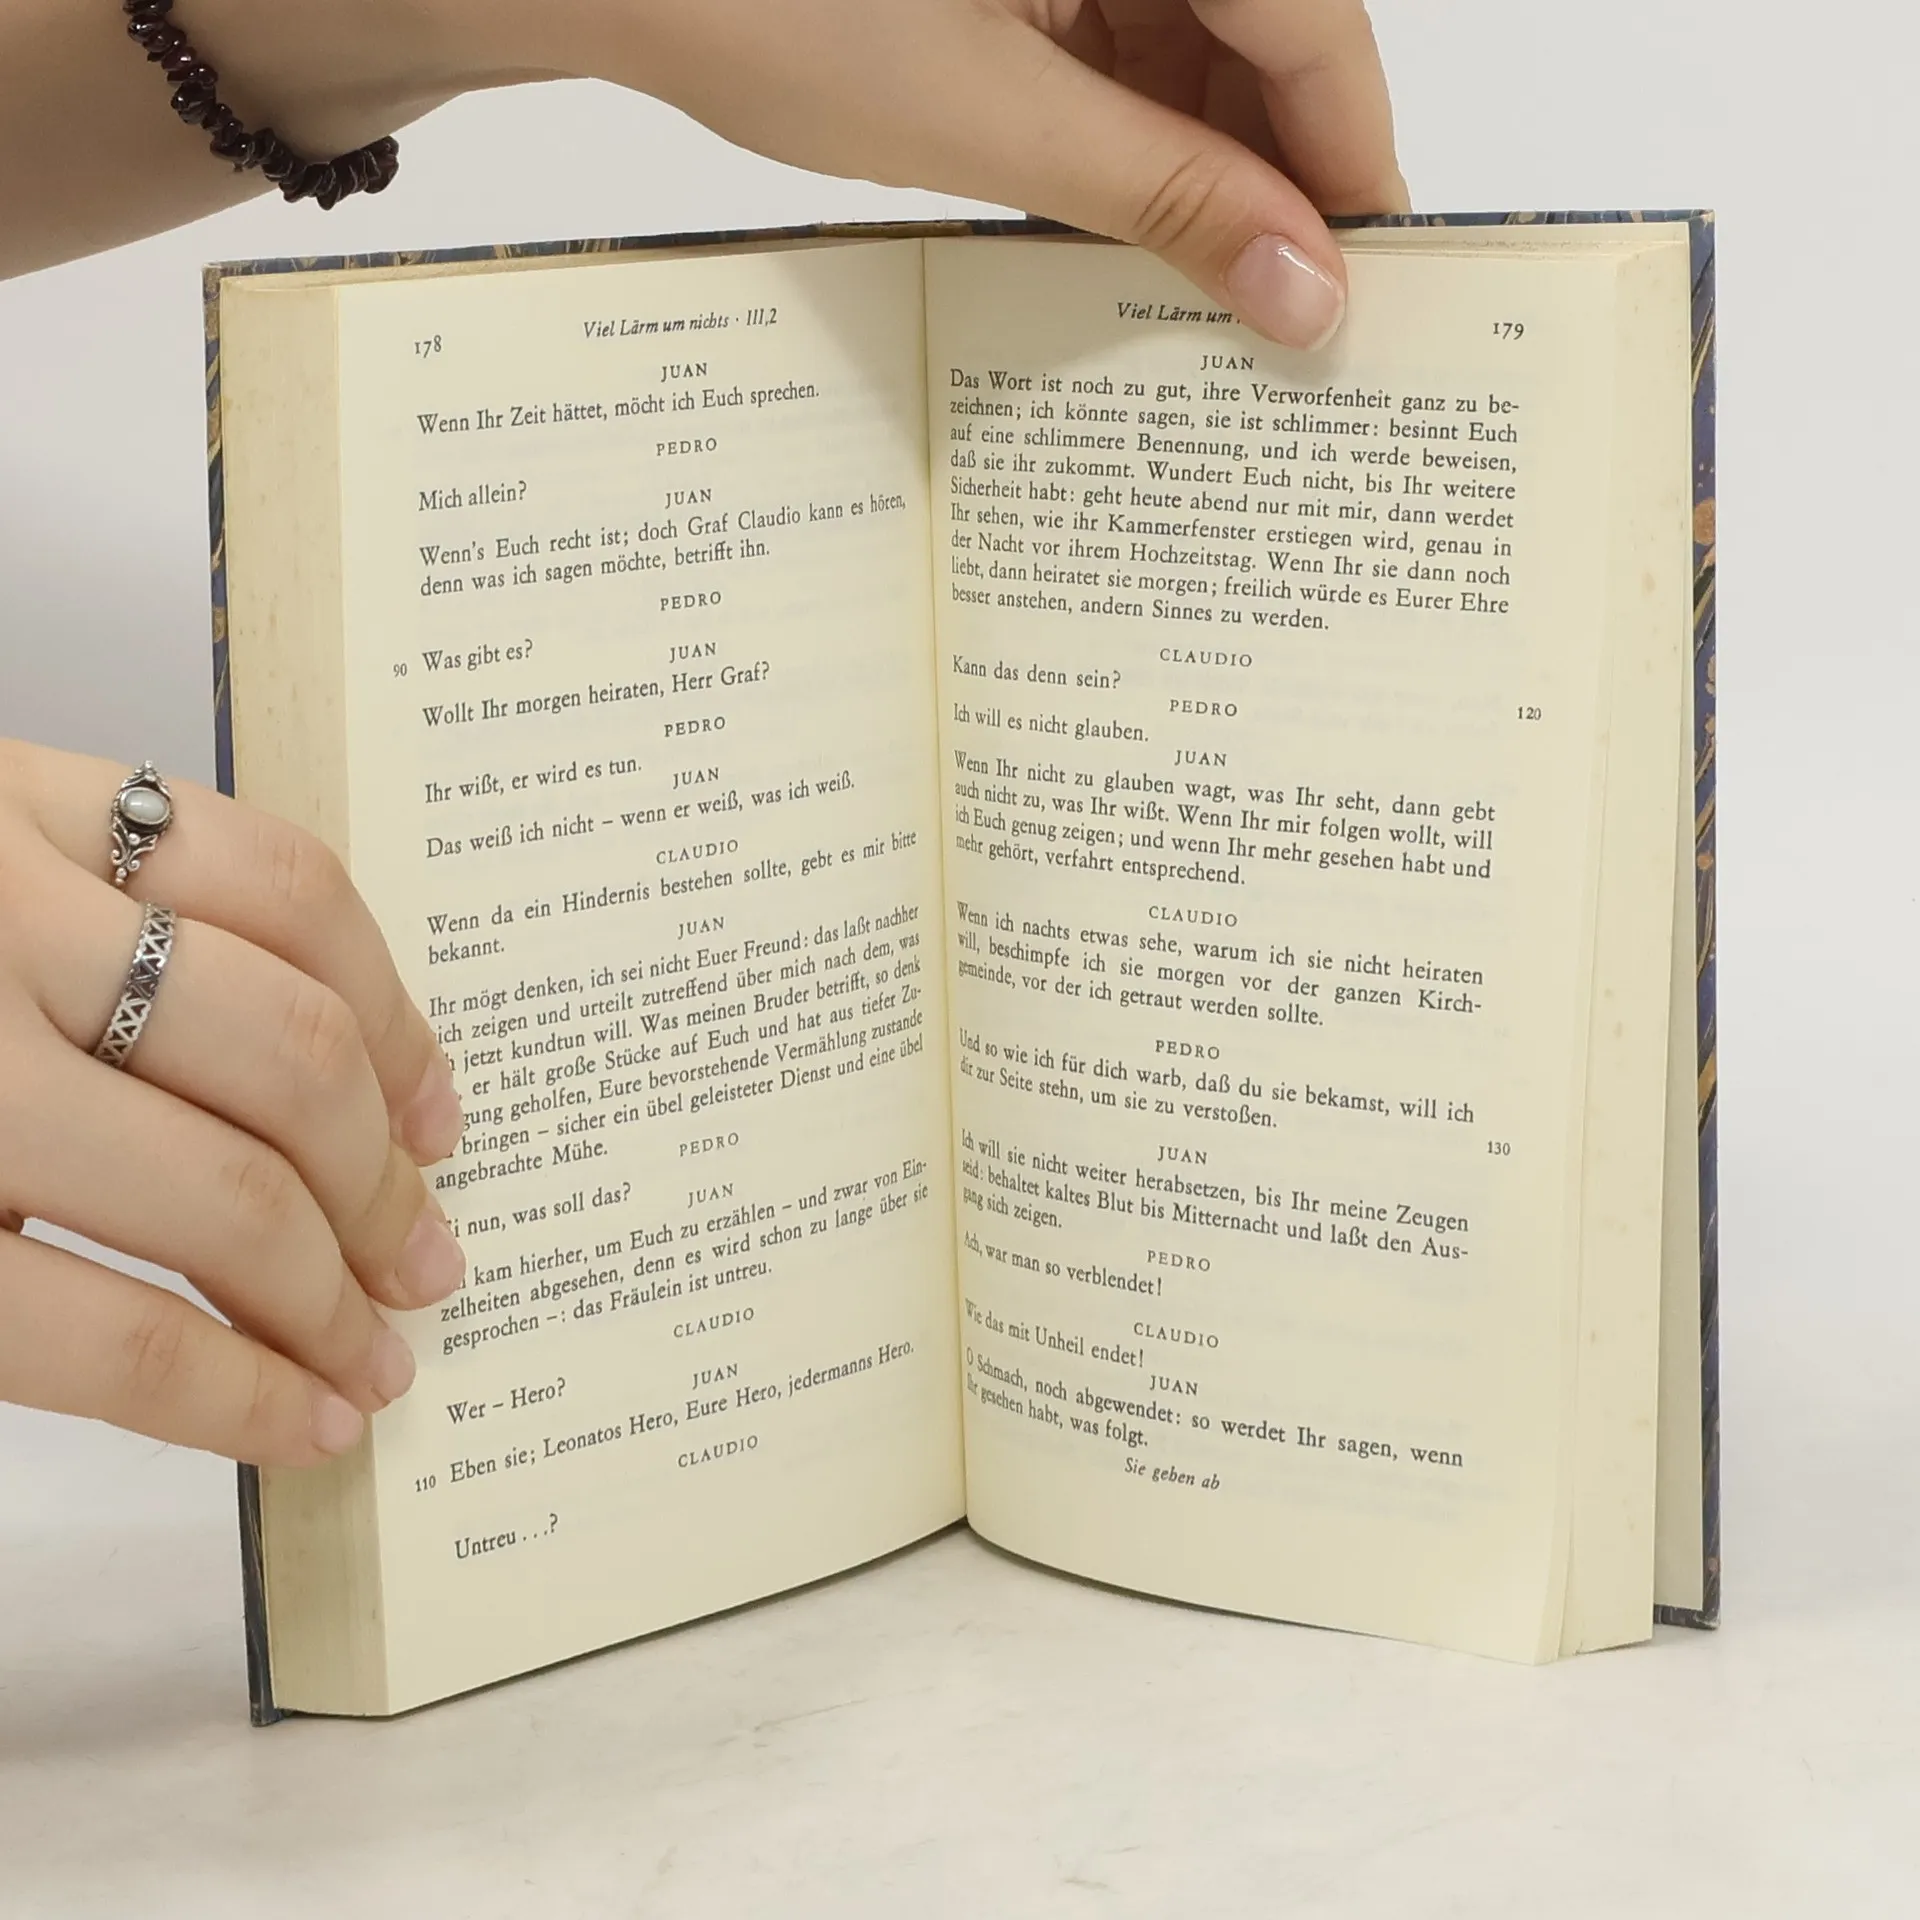 178
Viel Lärm um nichts · III,2
JUAN
Wenn Ihr Zeit hättet, möcht ich Euch sprechen.
PEDRO
Mich allein?
JUAN
Wenn's Euch recht ist; doch Graf Claudio kann es hören,
denn was ich sagen möchte, betrifft ihn.
PEDRO
90 Was gibt es?
JUAN
Wollt Ihr morgen heiraten, Herr Graf?
PEDRO
Ihr wißt, er wird es tun.
JUAN
Das weiß ich nicht – wenn er weiß, was ich weiß.
CLAUDIO
Wenn da ein Hindernis bestehen sollte, gebt es mir bitte
bekannt.
JUAN
Ihr mögt denken, ich sei nicht Euer Freund: das laßt nachher
zeigen und urteilt zutreffend über mich nach dem, was
jetzt kundtun will. Was meinen Bruder betrifft, so denk
er hält große Stücke auf Euch und hat aus tiefer Zu-
gung geholfen, Eure bevorstehende Vermählung zustande
bringen – sicher ein übel geleisteter Dienst und eine übel
angebrachte Mühe.
PEDRO
nun, was soll das?
JUAN
kam hierher, um Euch zu erzählen – und zwar von Ein-
zelheiten abgesehen, denn es wird schon zu lange über sie
gesprochen –: das Fräulein ist untreu.
CLAUDIO
Wer – Hero?
JUAN
110 Eben sie; Leonatos Hero, Eure Hero, jedermanns Hero.
CLAUDIO
Untreu . . .?
Viel Lärm um
179
JUAN
Das Wort ist noch zu gut, ihre Verworfenheit ganz zu be-
zeichnen; ich könnte sagen, sie ist schlimmer: besinnt Euch
auf eine schlimmere Benennung, und ich werde beweisen,
daß sie ihr zukommt. Wundert Euch nicht, bis Ihr weitere
Sicherheit habt: geht heute abend nur mit mir, dann werdet
Ihr sehen, wie ihr Kammerfenster erstiegen wird, genau in
der Nacht vor ihrem Hochzeitstag. Wenn Ihr sie dann noch
liebt, dann heiratet sie morgen; freilich würde es Eurer Ehre
besser anstehen, andern Sinnes zu werden.
CLAUDIO
Kann das denn sein?
PEDRO
120
Ich will es nicht glauben.
JUAN
Wenn Ihr nicht zu glauben wagt, was Ihr seht, dann gebt
auch nicht zu, was Ihr wißt. Wenn Ihr mir folgen wollt, will
ich Euch genug zeigen; und wenn Ihr mehr gesehen habt und
mehr gehört, verfahrt entsprechend.
CLAUDIO
Wenn ich nachts etwas sehe, warum ich sie nicht heiraten
will, beschimpfe ich sie morgen vor der ganzen Kirch-
gemeinde, vor der ich getraut werden sollte.
PEDRO
Und so wie ich für dich warb, daß du sie bekamst, will ich
dir zur Seite stehn, um sie zu verstoßen.
JUAN
130
Ich will sie nicht weiter herabsetzen, bis Ihr meine Zeugen
seid: behaltet kaltes Blut bis Mitternacht und laßt den Aus-
gang sich zeigen.
PEDRO
Ach, war man so verblendet!
CLAUDIO
Wie das mit Unheil endet!
JUAN
O Schmach, noch abgewendet: so werdet Ihr sagen, wenn
Ihr gesehen habt, was folgt.
Sie geben ab